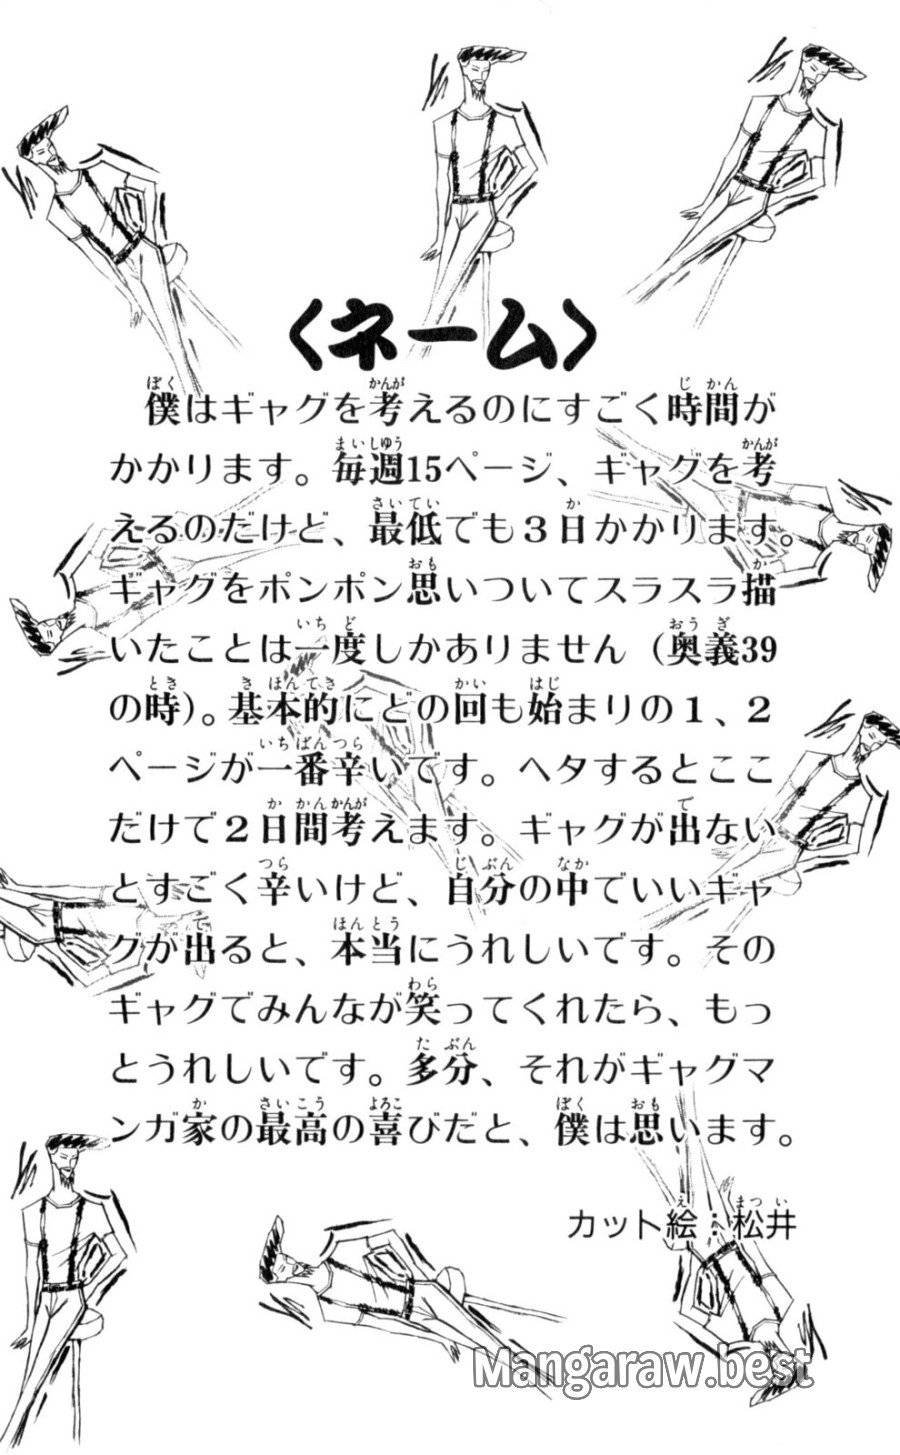 〈ネーム〉
僕はギャグを考えるのにすごく時間が
かかります。毎週15ページ、ギャグを考
えるのだけど、最低でも３日かかります。
ギャグをポンポン思いついてスラスラ描
いたことは一度しかありません（奥義39
の時）。基本的にどの回も始まりの１、２
ページが一番辛いです。ヘタするとここ
だけで２日間考えます。ギャグが出ない
とすごく辛いけど、自分の中でいいギャ
グが出ると、本当にうれしいです。その
ギャグでみんなが笑ってくれたら、もっ
とうれしいです。多分、それがギャグマ
ンガ家の最高の喜びだと、僕は思います。
カット絵：松井
Mangaraw.best